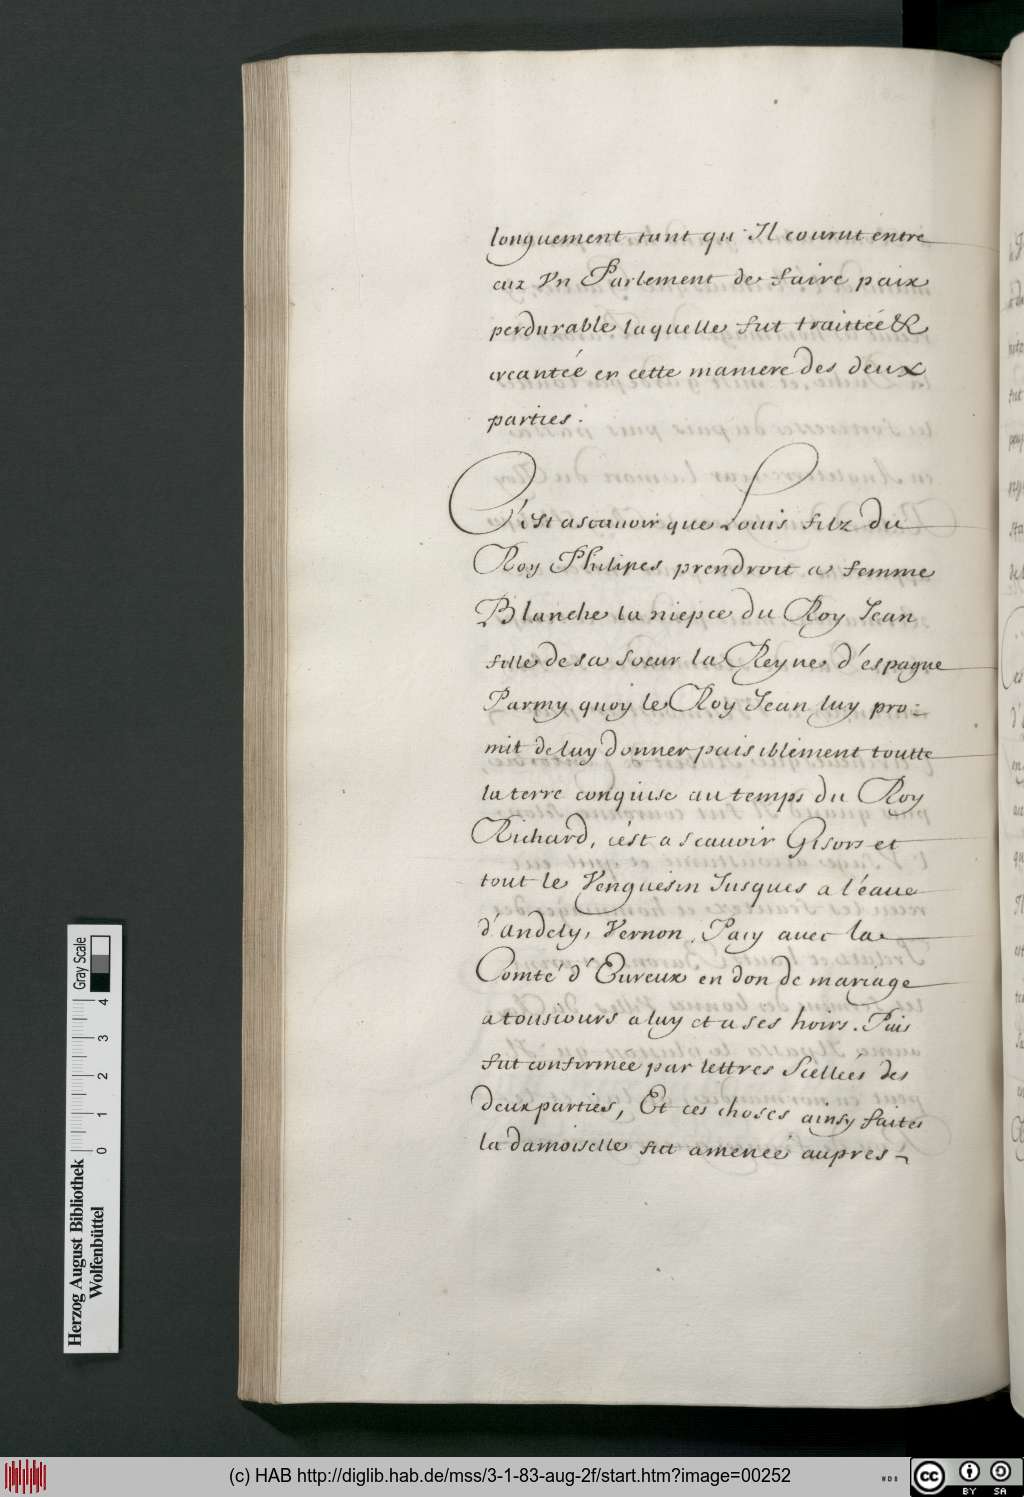 longuement tant qu'Il courut entre
aux Vn Parlement de faire paix
perdurable laquelle fut traittéé &
creantéé en cette maniere des deux
parties.
C'est ascauoir que Louis filz du
Roy Philipes prendroit a femme
Blanche la niepce du Roy Jean
fille de sa soeur la Reyne d'espagne
Parmy quoy le Roy Jean luy pro-
mit de luy donner paisiblement toutte
la terre conquise au temps du Roy
Richard, c'est a scauoir Gisors et
tout le Venguesin Jusques a l'éaue
d'Andely, Vernon, Pacy auec la
Comté d'Eureux en don de mariage
a tousiours a luy et a ses hoirs. Puis
fut confirmee par lettres Scelleés des
deux parties, Et ces choses ainsy faites
la damoiselle fut amenéé aupres-
Gray Scale
0 1 2 3 4
Herzog August Bibliothek
Wolfenbüttel
(c) HAB http://diglib.hab.de/mss/3-1-83-aug-2f/start.htm?image=00252
cc BY SA